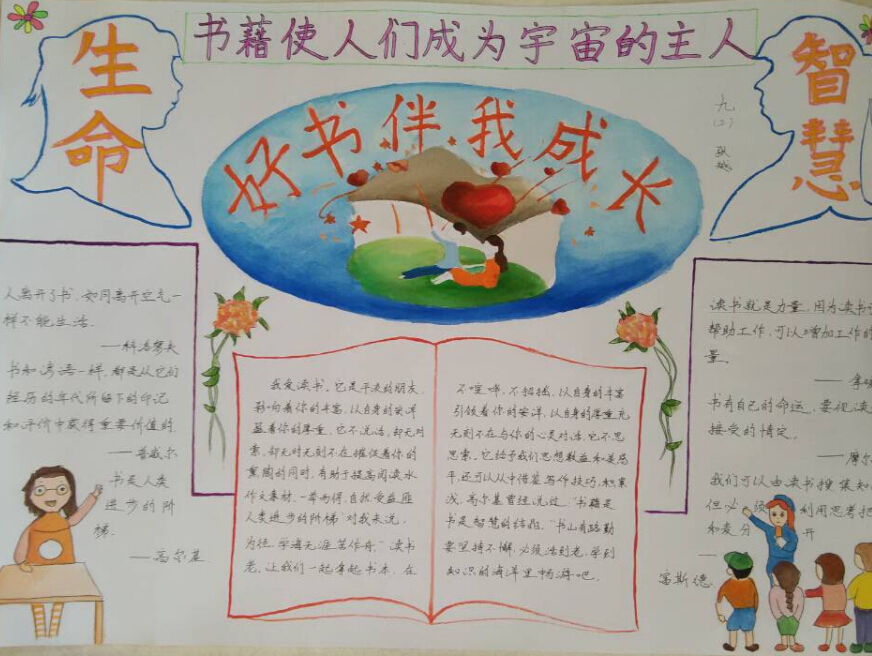 书藉使人们成为宇宙的主人
生命
智慧
好书伴我成长
九(二)
人离开了书,如同离开空气一
样不能生活.
——科洛廖夫
书和
经历的年代所留下的印记
和评价中获得重要价值的.
——普敏尔
书是人类
进步的阶
梯.
——高尔基
我爱读书。它是平淡的朋友,
你的丰富,以自身的安洋
着你的厚重。它不说话,却无时
却无时无刻不在催促着你的
熏陶的同时,有助于提高阅读水
作文素材,一举两得,自然受益匪
人类进步的阶梯"对我来说,
为径,学海无涯苦作舟。"读书
老,让我们一起拿起书本,在
不喧哗,不招摇,以自身的丰富
引领着你的安洋,以自身的厚重充
无刻不在与你的心灵对话,它不思
思索。它给予我们思想教益和美感
平,还可以从中借鉴写作技巧,积累
浅。高尔基曾经说过:"书籍是
书是智慧的结晶,"书山有路勤
要坚持不懈,必须活到老,学到
知识的海洋里畅游吧。
读书就是力量,因为读书
帮助工作,可以增加工作的
量。
书有自己的命运,要视读
接受的情况。
——摩尔
我们可以由读书搜集知
但必须利用思考把
和麦分开
——
富斯德